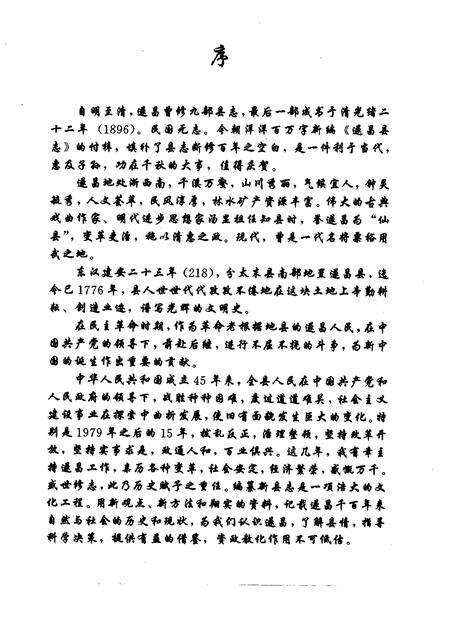 序
自明至清，遂昌曾修九部县志，最后一部成书于清光绪二
十二年（1896）。民国无志。今朝洋洋百万字新编《遂昌县
志》的付梓，填补了县志断修百年之空白，是一件利于当代，
惠及子孙，功在千秋的大事，值得庆贺。
遂昌地处浙西南，千溪万壑，山川秀丽，气候宜人，钟灵
毓秀，人文荟萃，民风淳厚，林水矿产资源丰富。伟大的古典
戏曲作家、明代进步思想家汤显祖任知县时，誉遂昌为“仙
县”，变革吏治，施以清惠之政。现代，曾是一代名将粟裕用
武之地。
东汉建安二十三年（218），分太末县南部地置遂昌县，迄
今已1776年，县人世世代代孜孜不倦地在这块土地上辛勤耕
耘、创造业迹，谱写光辉的文明史。
在民主革命时期，作为革命老根据地县的遂昌人民，在中
国共产党的领导下，前赴后继，进行不屈不挠的斗争，为新中
国的诞生作出重要的贡献。
中华人民共和国成立45年来，全县人民在中国共产党和
人民政府的领导下，战胜种种困难，度过道道难关，社会主义
建设事业在探索中曲折发展，使旧有面貌发生巨大的变化。特
别是1979年之后的15年，拨乱反正，治理整顿，坚持改革开
放，坚持实事求是，政通人和，百业俱兴。这几年，我有幸主
持遂昌工作，具历各种变革，社会安定，经济繁荣，感慨万千。
盛世修志，此乃历史赋予之重任。编纂新县志是一项浩大的文
化工程。用新观点、新方法和翔实的资料，记载遂昌千百年来
自然与社会的历史和现状，为我们认识遂昌，了解县情，指导
科学决策，提供有益的借鉴，资政教化作用不可低估。